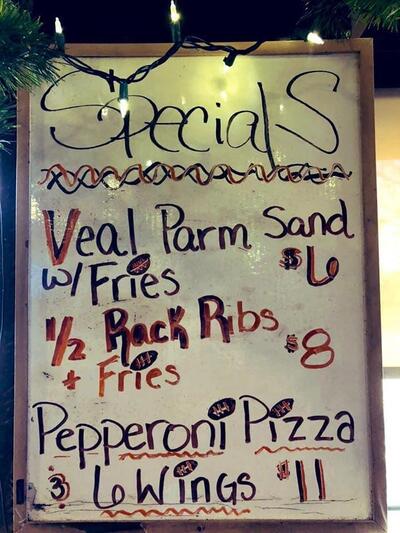 Specials
Veal Parm Sand
w/ Fries $6
1/2 Rack Ribs
+ Fries $8
Pepperoni Pizza
& 6 Wings $11